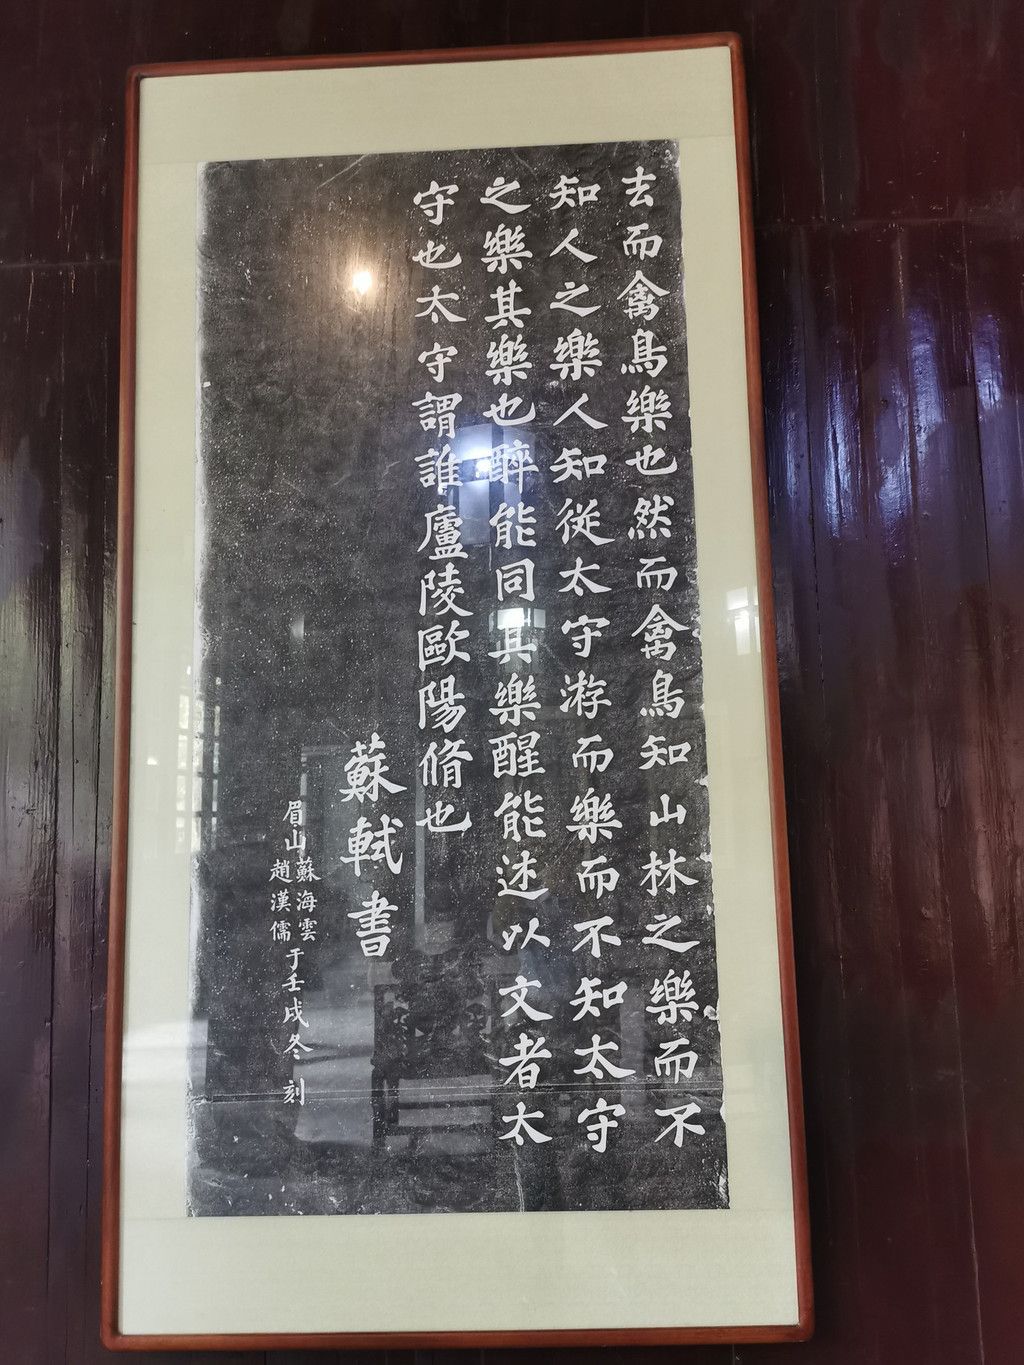 去而禽鳥樂也然而禽鳥知山林之樂而不
知人之樂人知從太守游而樂而不知太守
之樂其樂也醉能同其樂醒能述以文者太
守也太守謂誰廬陵歐陽脩也
蘇軾書
眉山蘇海雲
趙漢儒
于壬戌冬刻